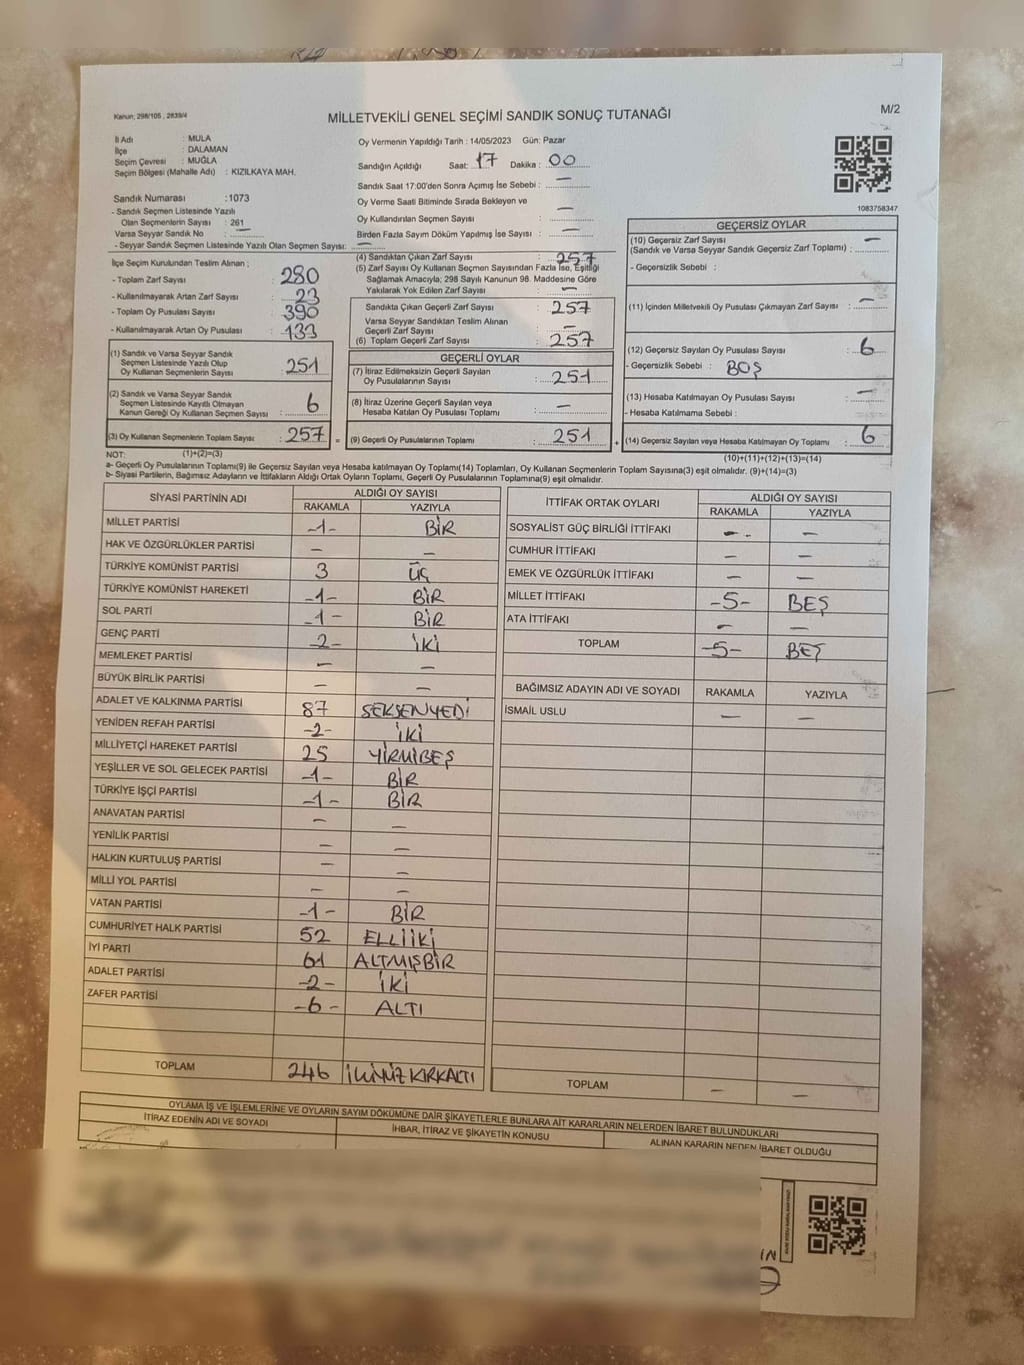 Kanun; 298/105 , 2839/4
MİLLETVEKİLİ GENEL SEÇİMİ SANDIK SONUÇ TUTANAĞI
M/2
İl Adı : MULA
İlçe : DALAMAN
Seçim Çevresi : MUĞLA
Seçim Bölgesi (Mahalle Adı) : KIZILKAYA MAH.
Sandık Numarası :1073
- Sandık Seçmen Listesinde Yazılı
Olan Seçmenlerin Sayısı : 261
Varsa Seyyar Sandık No : —
- Seyyar Sandık Seçmen Listesinde Yazılı Olan Seçmen Sayısı: —
Oy Vermenin Yapıldığı Tarih : 14/05/2023 Gün: Pazar
Sandığın Açıldığı Saat: 17 Dakika : 00
Sandık Saat 17:00'den Sonra Açımış İse Sebebi : —
Oy Verme Saati Bitiminde Sırada Bekleyen ve
Oy Kullandırılan Seçmen Sayısı : —
Birden Fazla Sayım Döküm Yapılmış İse Sayısı : —
1083758347
İlçe Seçim Kurulundan Teslim Alınan ;
- Toplam Zarf Sayısı : 280
- Kullanılmayarak Artan Zarf Sayısı : 23
- Toplam Oy Pusulası Sayısı : 390
- Kullanılmayarak Artan Oy Pusulası : 133
(1) Sandık ve Varsa Seyyar Sandık
Seçmen Listesinde Yazılı Olup
Oy Kullanan Seçmenlerin Sayısı : 251
(2) Sandık ve Varsa Seyyar Sandık
Seçmen Listesinde Kayıtlı Olmayan
Kanun Gereği Oy Kullanan Seçmen Sayısı : 6
(3) Oy Kullanan Seçmenlerin Toplam Sayısı : 257 =
(4) Sandıktan Çıkan Zarf Sayısı : 257
(5) Zarf Sayısı Oy Kullanan Seçmen Sayısından Fazla İse, Eşitliği
Sağlamak Amacıyla; 298 Sayılı Kanunun 98. Maddesine Göre
Yakılarak Yok Edilen Zarf Sayısı : —
Sandıkta Çıkan Geçerli Zarf Sayısı : 257
Varsa Seyyar Sandıktan Teslim Alınan
Geçerli Zarf Sayısı : —
(6) Toplam Geçerli Zarf Sayısı : 257
GEÇERLİ OYLAR
(7) İtiraz Edilmeksizin Geçerli Sayılan
Oy Pusulalarının Sayısı : 251
(8) İtiraz Üzerine Geçerli Sayılan veya
Hesaba Katılan Oy Pusulası Toplamı : —
(9) Geçerli Oy Pusulalarının Toplamı : 251 +
GEÇERSİZ OYLAR
(10) Geçersiz Zarf Sayısı
(Sandık ve Varsa Seyyar Sandık Geçersiz Zarf Toplamı) : —
- Geçersizlik Sebebi :
(11) İçinden Milletvekili Oy Pusulası Çıkmayan Zarf Sayısı : —
(12) Geçersiz Sayılan Oy Pusulası Sayısı : 6
- Geçersizlik Sebebi : BOŞ
(13) Hesaba Katılmayan Oy Pusulası Sayısı : —
- Hesaba Katılmama Sebebi :
(14) Geçersiz Sayılan veya Hesaba Katılmayan Oy Toplamı : 6
NOT: (1)+(2)=(3) (10)+(11)+(12)+(13)=(14)
a- Geçerli Oy Pusulalarının Toplamı(9) ile Geçersiz Sayılan veya Hesaba katılmayan Oy Toplamı(14) Toplamları, Oy Kullanan Seçmenlerin Toplam Sayısına(3) eşit olmalıdır. (9)+(14)=(3)
b- Siyasi Partilerin, Bağımsız Adayların ve İttifakların Aldığı Ortak Oyların Toplamı, Geçerli Oy Pusulalarının Toplamına(9) eşit olmalıdır.
SİYASİ PARTİNİN ADI ALDIĞI OY SAYISI
RAKAMLA YAZIYLA
MİLLET PARTİSİ -1- BİR
HAK VE ÖZGÜRLÜKLER PARTİSİ — —
TÜRKİYE KOMÜNİST PARTİSİ 3 ÜÇ
TÜRKİYE KOMÜNİST HAREKETİ -1- BİR
SOL PARTİ -1- BİR
GENÇ PARTİ -2- İKİ
MEMLEKET PARTİSİ — —
BÜYÜK BİRLİK PARTİSİ — —
ADALET VE KALKINMA PARTİSİ 87 SEKSENYEDİ
YENİDEN REFAH PARTİSİ -2- İKİ
MİLLİYETÇİ HAREKET PARTİSİ 25 YİRMİBEŞ
YEŞİLLER VE SOL GELECEK PARTİSİ -1- BİR
TÜRKİYE İŞÇİ PARTİSİ -1- BİR
ANAVATAN PARTİSİ — —
YENİLİK PARTİSİ — —
HALKIN KURTULUŞ PARTİSİ — —
MİLLİ YOL PARTİSİ — —
VATAN PARTİSİ -1- BİR
CUMHURİYET HALK PARTİSİ 52 ELLİİKİ
İYİ PARTİ 61 ALTMIŞBİR
ADALET PARTİSİ -2- İKİ
ZAFER PARTİSİ -6- ALTI
TOPLAM 246 İKİYÜZKIRKALTI
İTTİFAK ORTAK OYLARI ALDIĞI OY SAYISI
RAKAMLA YAZIYLA
SOSYALİST GÜÇ BİRLİĞİ İTTİFAKI — —
CUMHUR İTTİFAKI — —
EMEK VE ÖZGÜRLÜK İTTİFAKI — —
MİLLET İTTİFAKI -5- BEŞ
ATA İTTİFAKI — —
TOPLAM -5- BEŞ
BAĞIMSIZ ADAYIN ADI VE SOYADI RAKAMLA YAZIYLA
İSMAİL USLU — —
TOPLAM — —
OYLAMA İŞ VE İŞLEMLERİNE VE OYLARIN SAYIM DÖKÜMÜNE DAİR ŞİKAYETLERLE BUNLARA AİT KARARLARIN NELERDEN İBARET BULUNDUKLARI
İTİRAZ EDENİN ADI VE SOYADI İHBAR, İTİRAZ VE ŞİKAYETİN KONUSU ALINAN KARARIN NEDEN İBARET OLDUĞU